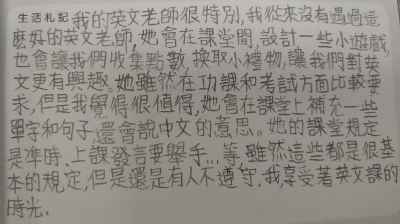 生活札記 我的英文老師很特別，我從來沒有遇過這
麼好的英文老師，她會在課堂間，設計一些小遊戲，
也會讓我們收集點數，換取小禮物，讓我們對英
文更有興趣。她雖然在功課和考試方面比較要
求，但是我覺得很值得，她會在課堂上補充一些
單字和句子，還會說中文的意思。她的課堂規定
是準時、上課發言要舉手…等，雖然這些都是很基
本的規定，但是還是有人不遵守。我享受著英文課的
時光。